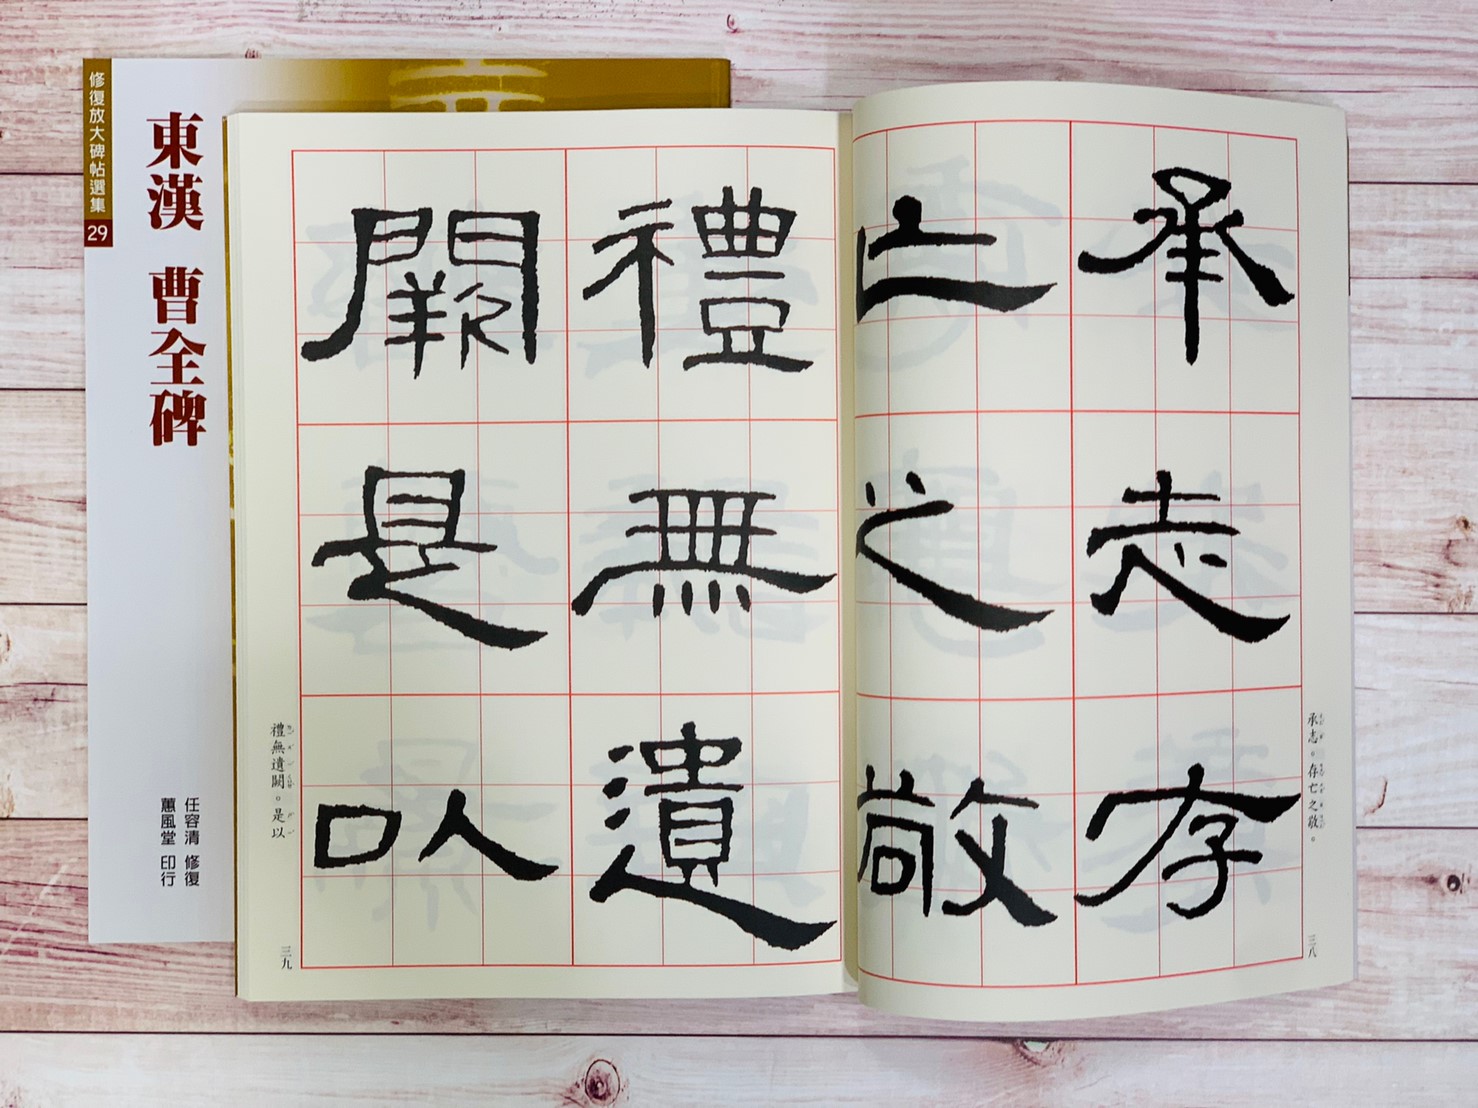 修復放大碑帖選集
29
東漢 曹全碑
任容清 修復
蕙風堂 印行
承志存
亡之敬
承志。存亡之敬。
三八
禮無遺
闕是以
禮無遺闕。是以
三九